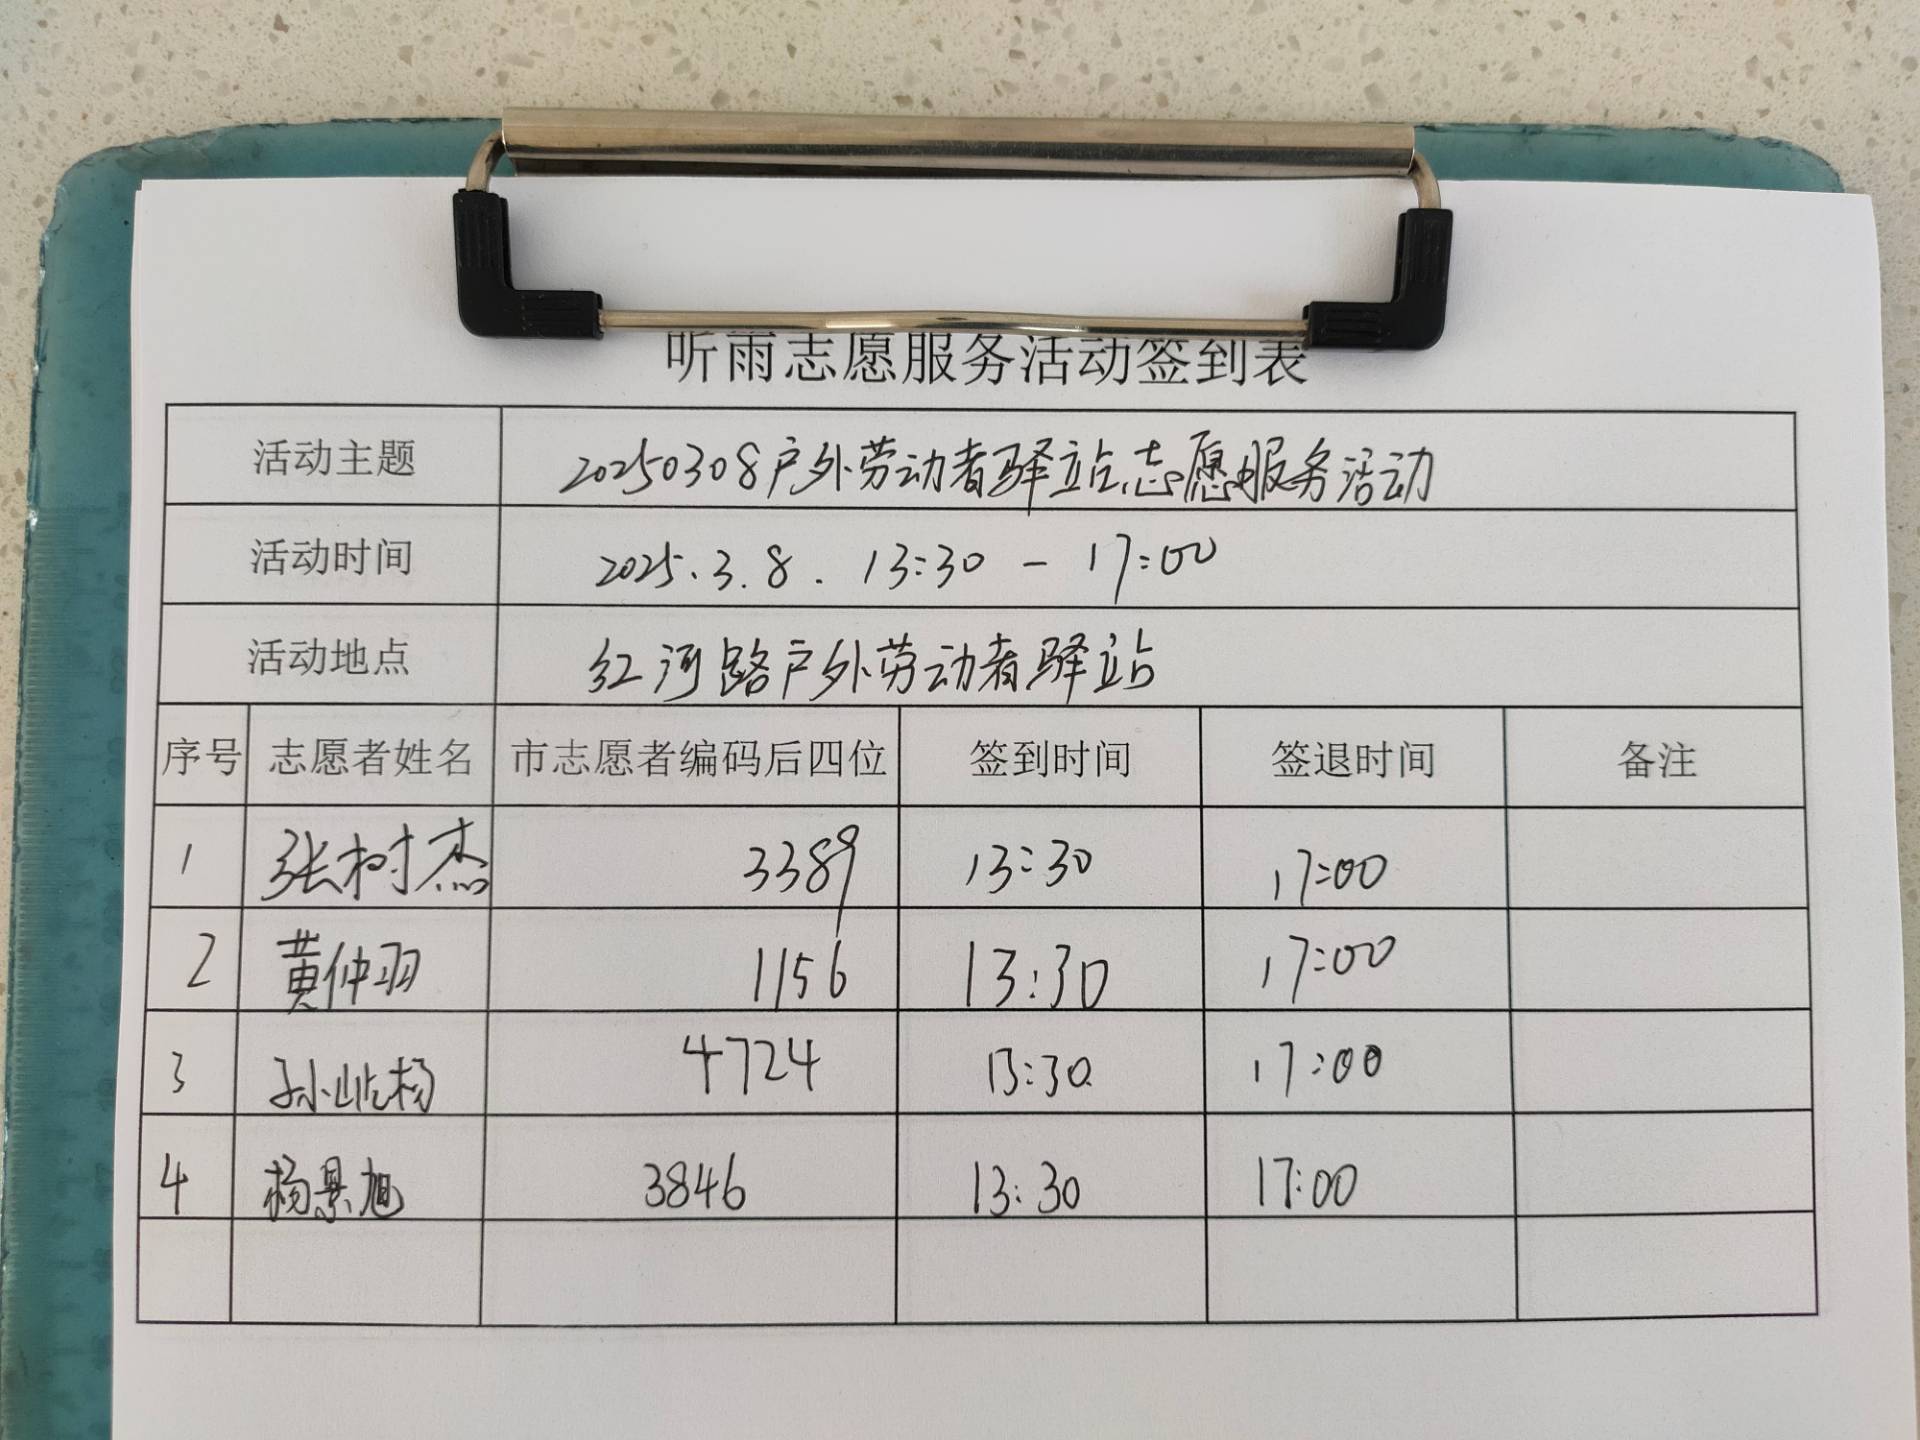 听雨志愿服务活动签到表
活动主题 20250308户外劳动者驿站志愿服务活动
活动时间 2025.3.8. 13:30 - 17:00
活动地点 红河路户外劳动者驿站
序号 志愿者姓名 市志愿者编码后四位 签到时间 签退时间 备注
1 张树杰 3389 13:30 17:00
2 黄仲羽 1156 13:30 17:00
3 孙屹杨 4724 13:30 17:00
4 杨景旭 3846 13:30 17:00